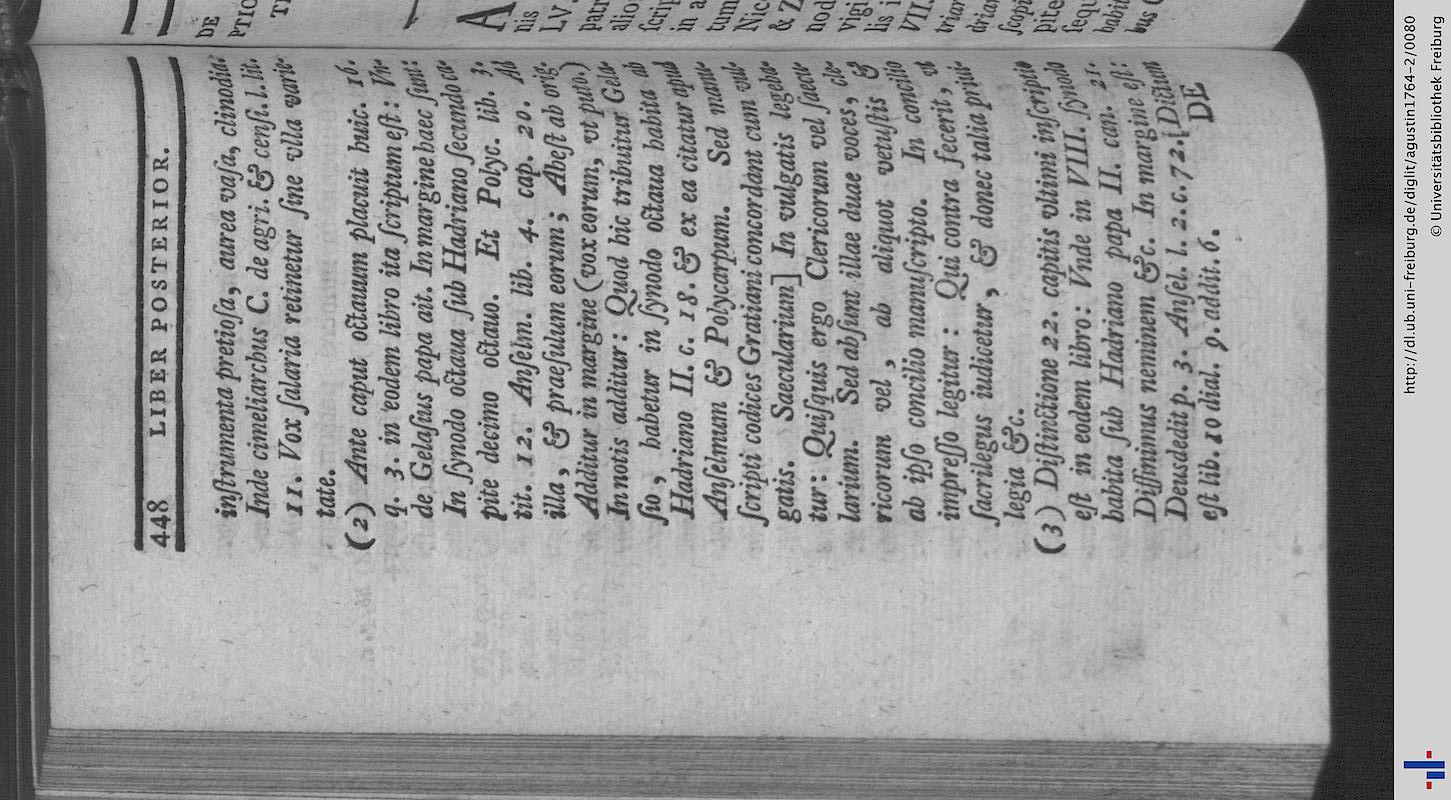 448 LIBER POSTERIOR.
inſtrumenta pretioſa, aurea vaſa, clinodia:
Inde cimeliarchus C. de agri. & cenſi. l. lit.
11. Vox ſalaria retinetur ſine vlla varie-
tate.
(2) Ante caput octauum placuit huic. 16.
q. 3. in eodem libro ita ſcriptum eſt: Vn-
de Gelaſius papa ait. In margine haec ſunt:
In ſynodo octaua ſub Hadriano ſecundo ca-
pite decimo octauo. Et Polyc. lib. 3.
tit. 12. Anſelm. lib. 4. cap. 20. Ab
illa, & praeſulum eorum; Abeſt ab orig.
Additur in margine (vox eorum, vt puto.)
In notis additur: Quod hic tribuitur Gela-
ſio, habetur in ſynodo octaua habita ab
Hadriano II. c. 18. & ex ea citatur apud
Anſelmum & Polycarpum. Sed manu-
ſcripti codices Gratiani concordant cum vul-
gatis. Saecularium] In vulgatis legeba-
tur: Quiſquis ergo Clericorum vel ſaecu-
larium. Sed abſunt illae duae voces, cle-
ricorum vel, ab aliquot vetuſtis &
ab ipſo concilio manuſcripto. In concilio
impreſſo legitur: Qui contra fecerit, vt
ſacrilegus iudicetur, & donec talia priui-
legia &c.
(3) Diſtinctione 22. capitis vltimi inſcriptio
eſt in eodem libro: Vnde in VIII. ſynodo
habita ſub Hadriano papa II. can. 21.
Diffinimus neminem &c. In margine eſt:
Deusdedit p. 3. Anſel. l. 2. c. 72. [Dictum
eſt lib. 10 dial. 9. addit. 6.
DE
DE
PTIO
A
nis
LV.
patr
alio
ſcrip
in a
tum
Nic
& Z
nod
vigi
lis i
VII.
triar
drian
ſcopi
pite
ſequ
habit
bus
http://dl.ub.uni-freiburg.de/diglit/agustin1764-2/0080
© Universitätsbibliothek Freiburg